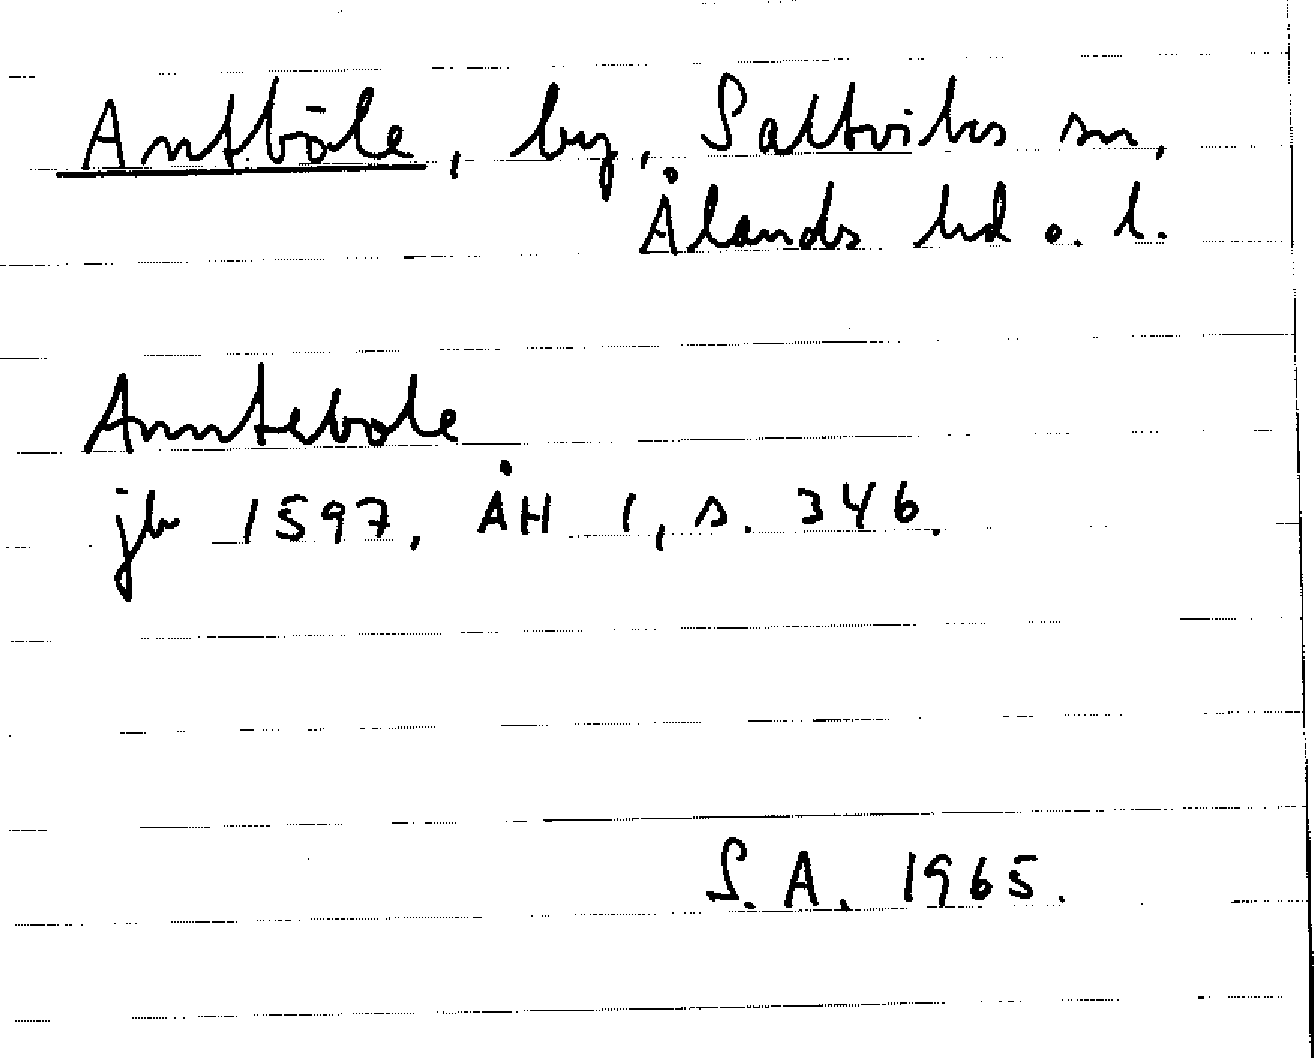 Antböle, by, Saltviks sn,
Ålands hd o. l.
Anntebole
jb 1597, ÅH 1, s. 346.
S. A. 1965.